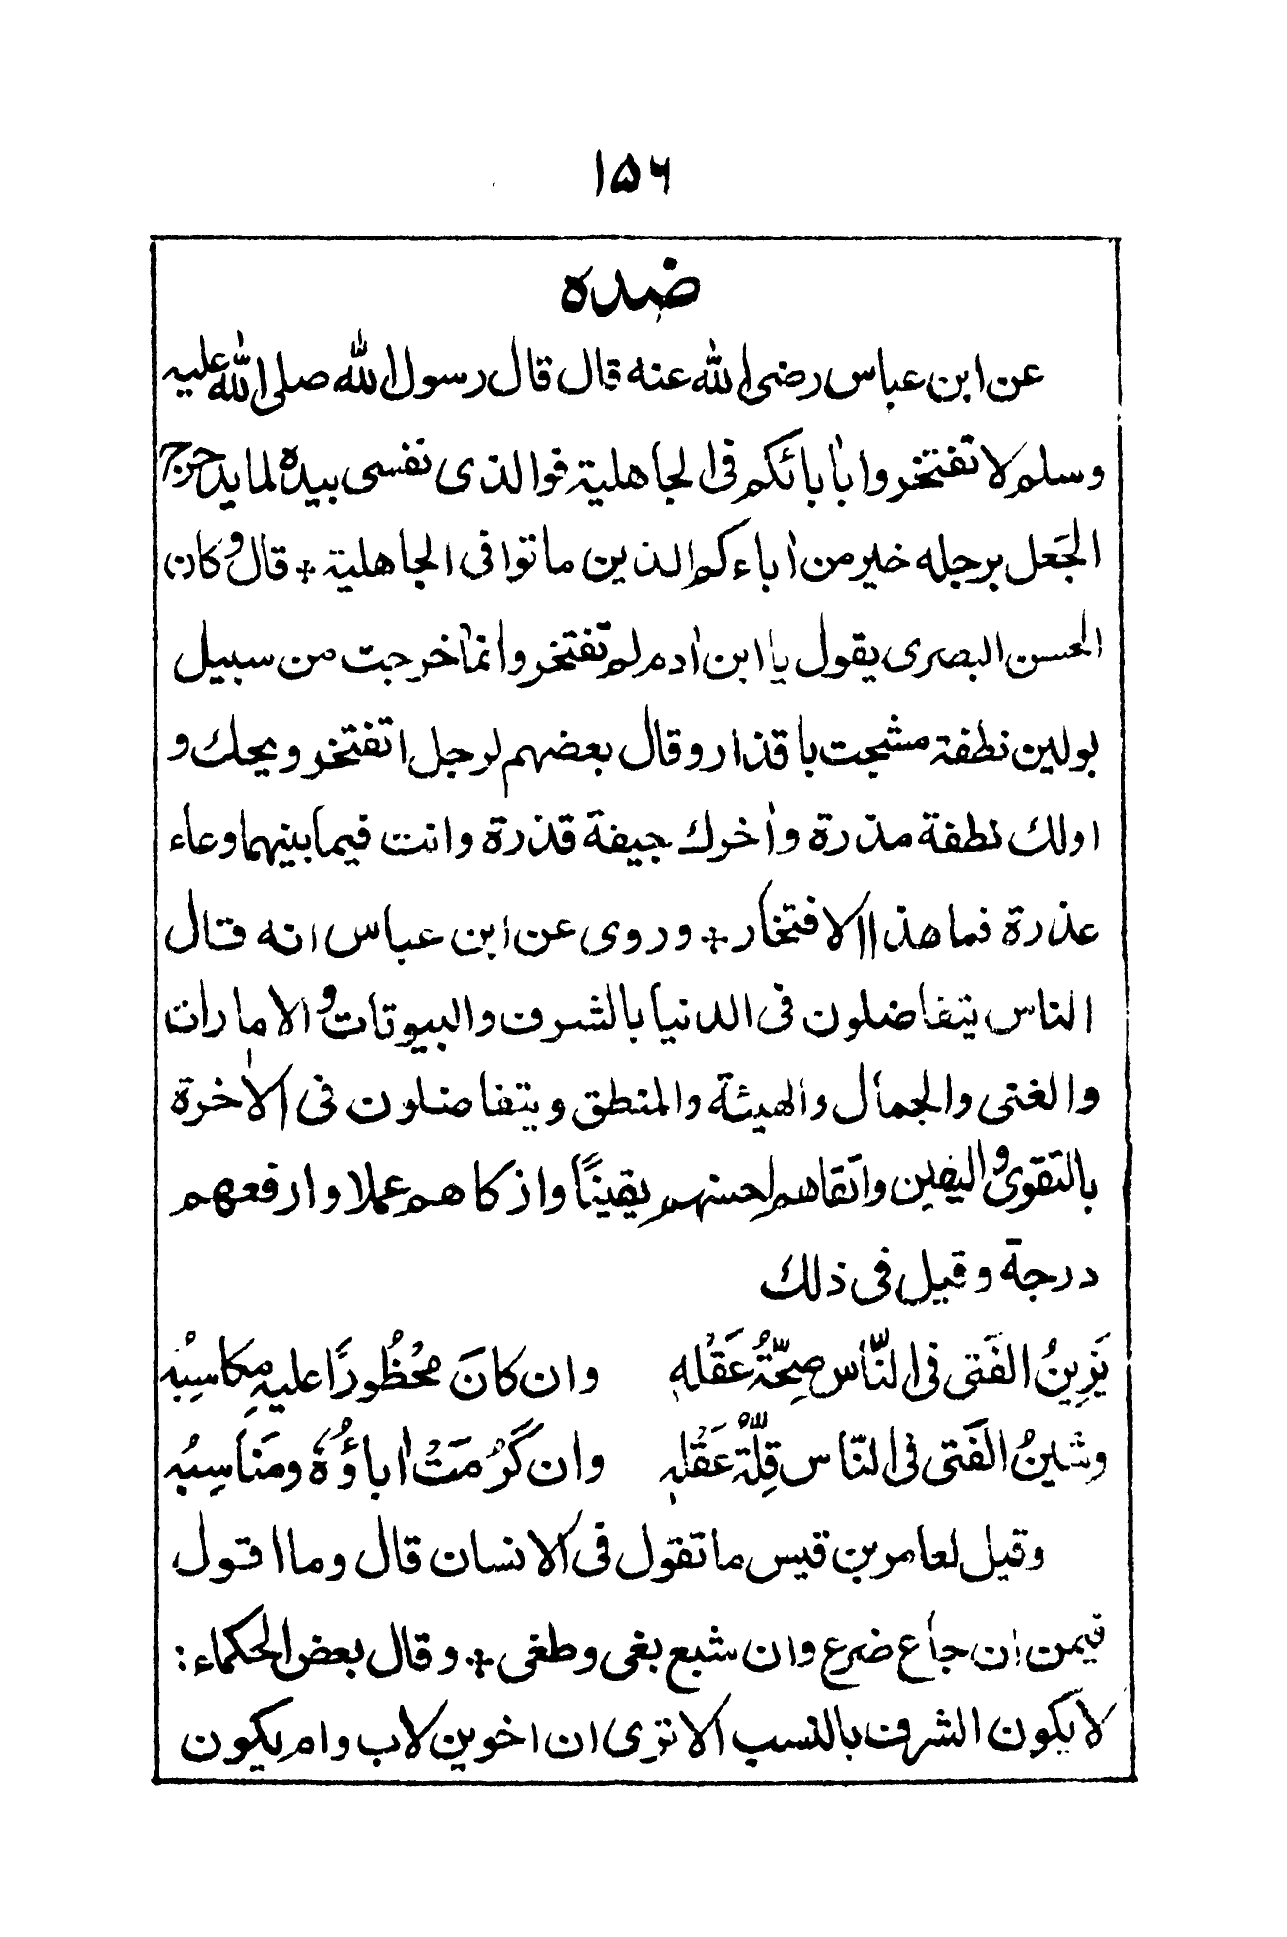 ١٥٦
ضده
عن ابن عباس رضى الله عنه قال قال رسول الله صلى الله عليه
وسلم لا تفتخروا بأبائكم فى الجاهلية فوالذى نفسى بيده لما يدحرج
الجَعل برجله خير من أباءكم الذين ماتوا فى الجاهلية + قال وكان
الحسن البصرى يقول يا ابن أدم لم تفتخر وانما خرجت من سبيل
بولين نطفة مشجت باقذار وقال بعضهم لرجل اتفتخر ويحك و
اولك نطفة مذرة وأخرك جيفة قذرة وانت فيما بينهما وعاء
عذرة فما هذا الافتخار + وروى عن ابن عباس انه قال
الناس يتفاضلون فى الدنيا بالشرف والبيوتات والامارات
والغنى والجمال والهيئة والمنطق ويتفاضلون فى الأخرة
بالتقوى واليقين واتقاهم احسنهم يقينًا وازكاهم عملا وارفعهم
درجة وقيل فى ذلك
يَزِينُ الفَتى فى النَّاس صِحّةُ عَقْلهِ وان كانَ محْظُورًا عليهِ مكاسِبُه
وشَينُ الفَتى فى النّاس قِلّةُ عَقْلهِ وان كَرُمَتْ أباؤُهُ ومَناسِبُه
وقيل لعامر بن قيس ما تقول فى الانسان قال وما اقول
فيمن ان جاع ضرع وان شبع بغى وطغى + وقال بعض الحكماء :
لا يكون الشرف بالنسب الا ترى ان اخوين لاب وام يكون